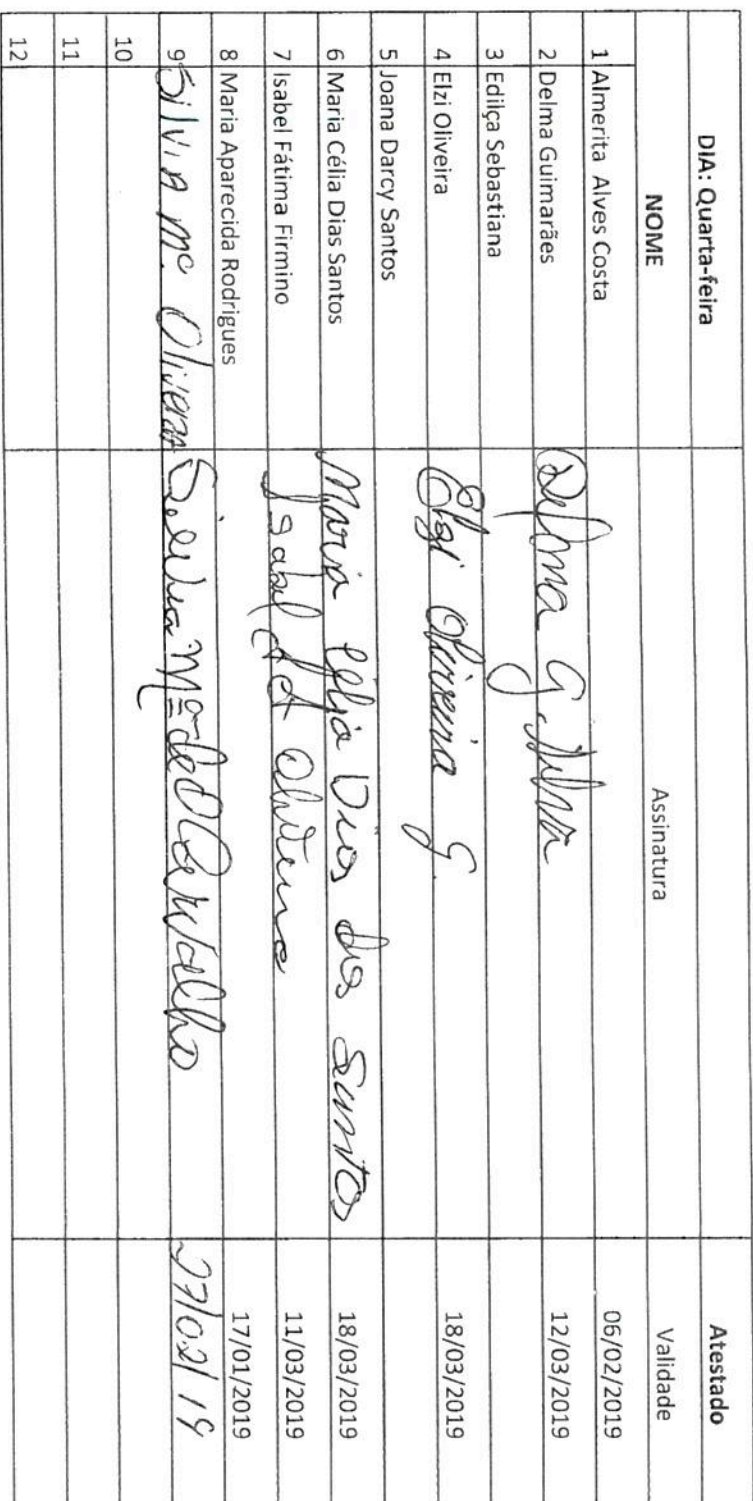 DIA: Quarta-feira Atestado
NOME Assinatura Validade
1 Almerita Alves Costa 06/02/2019
2 Delma Guimarães Delma G. Silva 12/03/2019
3 Edilça Sebastiana
4 Elzi Oliveira Elzi Oliveira G. 18/03/2019
5 Joana Darcy Santos
6 Maria Célia Dias Santos Maria Célia Dias dos Santos 18/03/2019
7 Isabel Fátima Firmino Isabel Oliveira 11/03/2019
8 Maria Aparecida Rodrigues 17/01/2019
9 Silvia Mª Oliveira Silvia Mª de O Carvalho 27/02/19
10
11
12